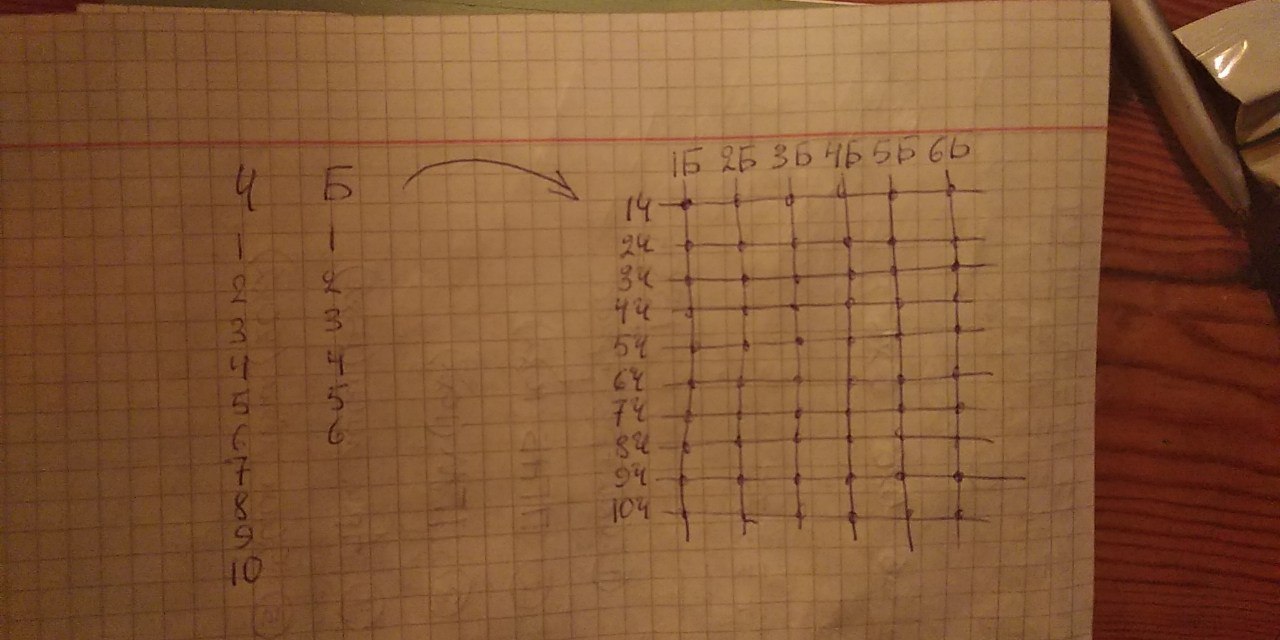 Ч Б
1 1
2 2
3 3
4 4
5 5
6 6
7
8
9
10
1Б 2Б 3Б 4Б 5Б 6Б
1Ч
2Ч
3Ч
4Ч
5Ч
6Ч
7Ч
8Ч
9Ч
10Ч